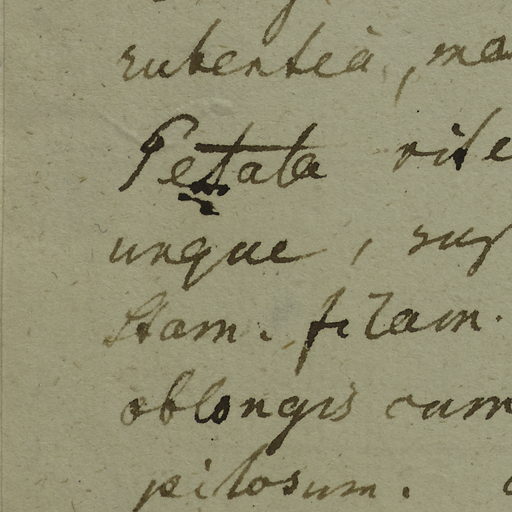 rubentia, ma
Petala
unque,
Stam. filam.
oblongis cum
pilosum.